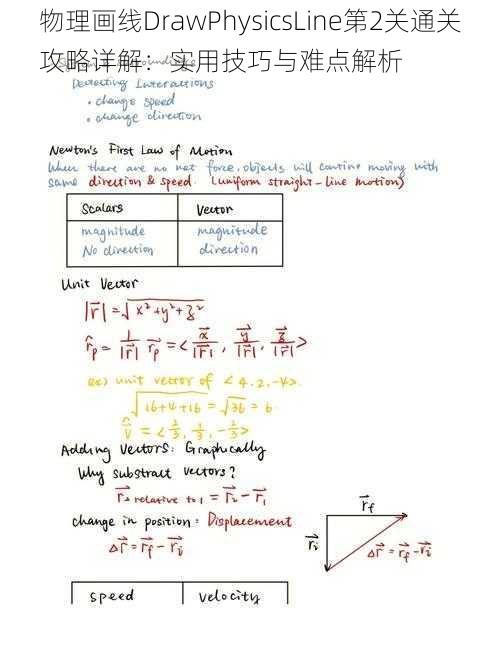 物理画线DrawPhysicsLine第2关通关
攻略详解：实用技巧与难点解析
Detecting Interactions
• change speed
• change direction
Newton's First Law of Motion
When there are no net force, objects will continue moving with
same direction & speed. (uniform straight-line motion)
Scalars Vector
magnitude magnitude
No direction direction
Unit Vector
|r⃗| = √x²+y²+z²
r̂p = 1/|r⃗| r⃗p = <x⃗/|r⃗|, y⃗/|r⃗|, z⃗/|r⃗|>
ex) unit vector of <4,2,-4>.
√16+4+16 = √36 = 6.
v̂ = <2/3, 1/3, -2/3>
Adding Vectors: Graphically
Why substract vectors?
r⃗2 relative to 1 = r⃗2 - r⃗1
change in position: Displacement
Δr⃗ = r⃗f - r⃗i
r⃗f
r⃗i
Δr⃗ = r⃗f - r⃗i
speed velocity